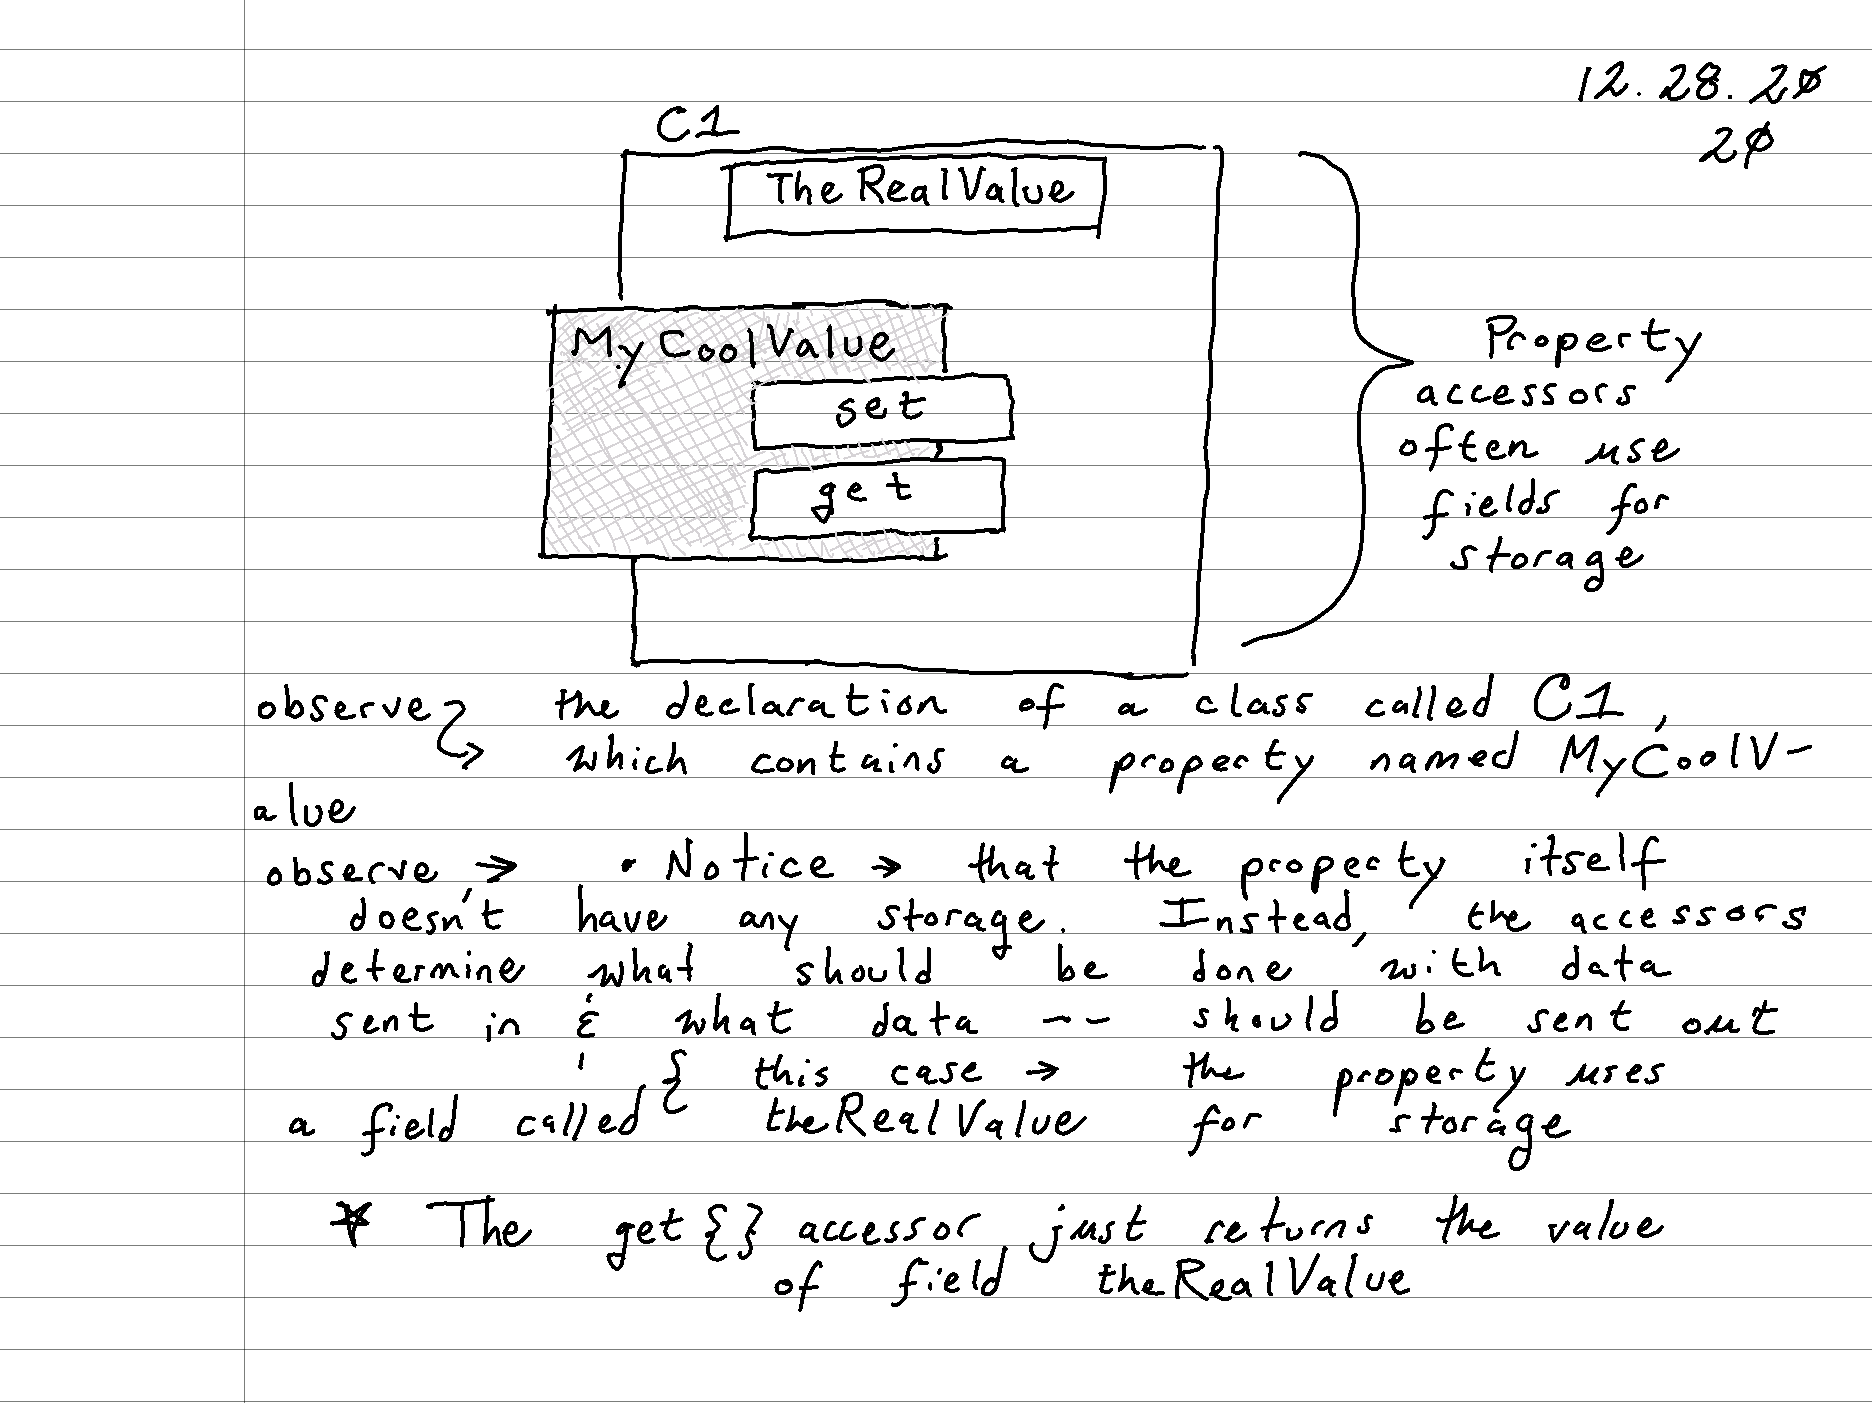 12.28.20
20
C1
The RealValue
MyCoolValue
set
get
Property
accessors
often use
fields for
storage
observe the declaration of a class called C1,
which contains a property named MyCoolV-
alue
observe → • Notice → that the property itself
doesn't have any storage. Instead, the accessors
determine what should be done with data
sent in & what data -- should be sent out
{ this case → the property uses
a field called theRealValue for storage
* The get {} accessor just returns the value
of field theRealValue